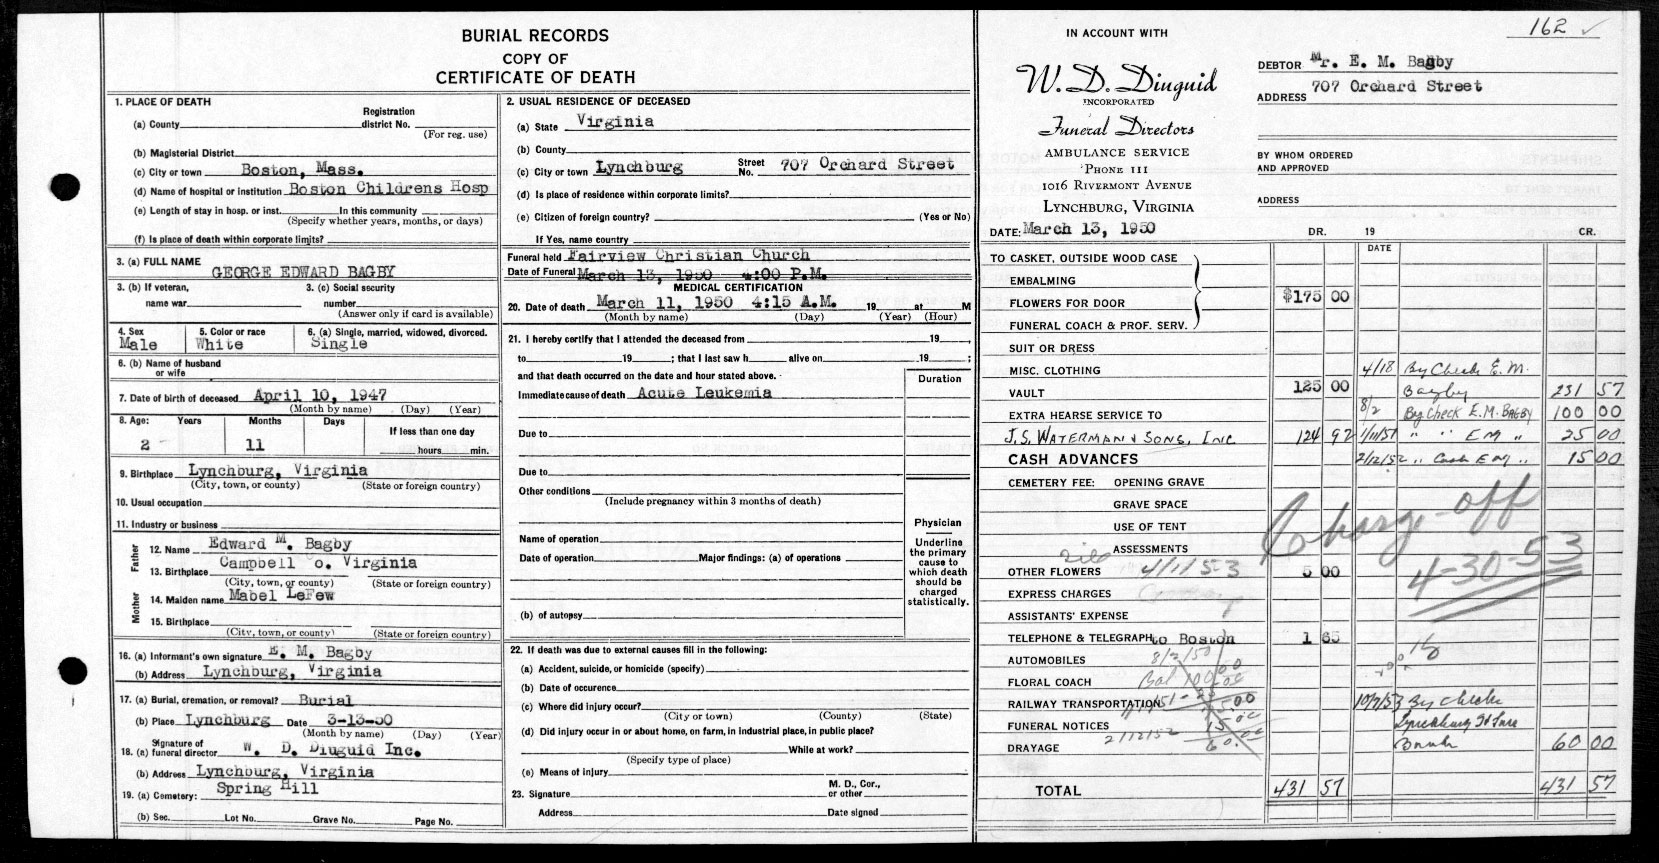 BURIAL RECORDS
COPY OF
CERTIFICATE OF DEATH
1. PLACE OF DEATH
(a) County
Registration district No.
(For reg. use)
(b) Magisterial District
(c) City or town Boston, Mass.
(d) Name of hospital or institution Boston Childrens Hosp
(e) Length of stay in hosp. or inst. In this community
(Specify whether years, months, or days)
(f) Is place of death within corporate limits?
3. (a) FULL NAME
GEORGE EDWARD BAGBY
3. (b) If veteran, name war
3. (c) Social security number
(Answer only if card is available)
4. Sex Male
5. Color or race White
6. (a) Single, married, widowed, divorced. Single
6. (b) Name of husband or wife
7. Date of birth of deceased April 10, 1947
(Month by name) (Day) (Year)
8. Age: Years Months Days If less than one day
2 11 hours min.
9. Birthplace Lynchburg, Virginia
(City, town, or county) (State or foreign country)
10. Usual occupation
11. Industry or business
Father
12. Name Edward M. Bagby
13. Birthplace Campbell o. Virginia
(City, town, or county) (State or foreign country)
Mother
14. Maiden name Mabel LeFew
15. Birthplace
(City, town, or county) (State or foreign country)
16. (a) Informant's own signature E. M. Bagby
(b) Address Lynchburg, Virginia
17. (a) Burial, cremation, or removal? Burial
(b) Place Lynchburg Date 3-13-50
(Month by name) (Day) (Year)
18. (a) Signature of funeral director W. D. Diuguid Inc.
(b) Address Lynchburg, Virginia
19. (a) Cemetery: Spring Hill
(b) Sec. Lot No. Grave No. Page No.
2. USUAL RESIDENCE OF DECEASED
(a) State Virginia
(b) County
(c) City or town Lynchburg Street No. 707 Orchard Street
(d) Is place of residence within corporate limits?
(e) Citizen of foreign country? (Yes or No)
If Yes, name country
Funeral held Fairview Christian Church
Date of Funeral March 13, 1950 4:00 P.M.
MEDICAL CERTIFICATION
20. Date of death March 11, 1950 4:15 A.M. 19 at M
(Month by name) (Day) (Year) (Hour)
21. I hereby certify that I attended the deceased from 19 ,
to 19 ; that I last saw h alive on 19 ;
and that death occurred on the date and hour stated above.
Duration
Immediate cause of death Acute Leukemia
Due to
Due to
Other conditions
(Include pregnancy within 3 months of death)
Name of operation
Date of operation Major findings: (a) of operations
(b) of autopsy
Physician
Underline
the primary
cause to
which death
should be
charged
statistically.
22. If death was due to external causes fill in the following:
(a) Accident, suicide, or homicide (specify)
(b) Date of occurence
(c) Where did injury occur?
(City or town) (County) (State)
(d) Did injury occur in or about home, on farm, in industrial place, in public place?
While at work?
(Specify type of place)
(e) Means of injury
23. Signature M. D., Cor., or other
Address Date signed
162 ✓
IN ACCOUNT WITH
W. D. Diuguid
INCORPORATED
Funeral Directors
AMBULANCE SERVICE
'PHONE 111
1016 RIVERMONT AVENUE
LYNCHBURG, VIRGINIA
DATE: March 13, 1950
DEBTOR Mr. E. M. Bagby
ADDRESS 707 Orchard Street
BY WHOM ORDERED
AND APPROVED
ADDRESS
DR. 19 CR.
DATE
TO CASKET, OUTSIDE WOOD CASE
EMBALMING
FLOWERS FOR DOOR $175 00
FUNERAL COACH & PROF. SERV.
SUIT OR DRESS
MISC. CLOTHING 4/18 By Check E. M.
VAULT 125 00 Bagby 231 57
EXTRA HEARSE SERVICE TO 8/2 By Check E.M. BAGBY 100 00
J.S. WATERMAN & SONS, INC 124 92 1/11/51 " " E M " 25 00
CASH ADVANCES 2/12/52 " Cash E M " 15 00
CEMETERY FEE: OPENING GRAVE
GRAVE SPACE
USE OF TENT
Charge-off
ASSESSMENTS
4-30-53
OTHER FLOWERS 4/11/53 5 00
EXPRESS CHARGES
ASSISTANTS' EXPENSE
TELEPHONE & TELEGRAPH to Boston 1 65
AUTOMOBILES 8/2/50
FLORAL COACH Bal 100.00
RAILWAY TRANSPORTATION 1/11/51 10/7/53 By Check
FUNERAL NOTICES 15.00 Lynchburg
DRAYAGE 2/12/52 60. Bank 60 00
TOTAL 431 57 431 57